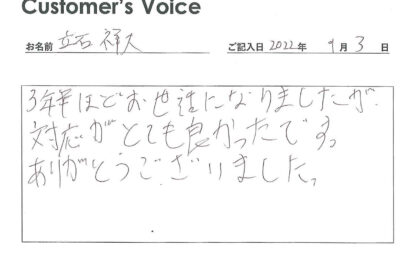 Customer's Voice
お名前 立石 祥久 ご記入日 2022年 9月 3日
3年半ほどお世話になりましたが、
対応がとても良かったです。
ありがとうございました。